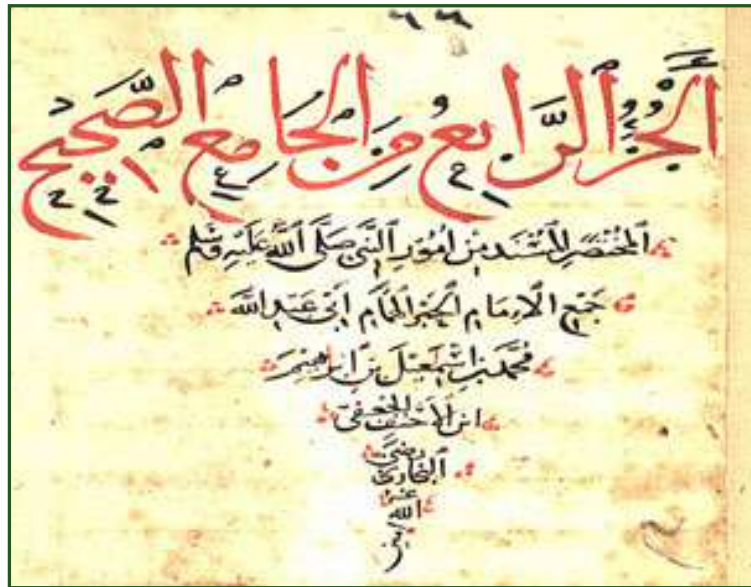 ٦٦
الجُزءُ الرَّابِعُ مِنَ الجَامِعِ الصَّحِيحِ
المُخْتَصَرِ المُسْنَدِ مِنْ اُمُورِ النَّبِي صَلَّى اللَّهُ عَلَيْهِ وَسَلَّم
جَمْعُ الاِمَامِ الحَبْرِ الهُمَامِ اَبِى عَبْدِ اللَّه
مُحَمَّد بن اِسْمَعِيل بن اِبْرَاهِيمَ
ابن الجُعفى
البُخَارِى رَضِىَ
الله عنه